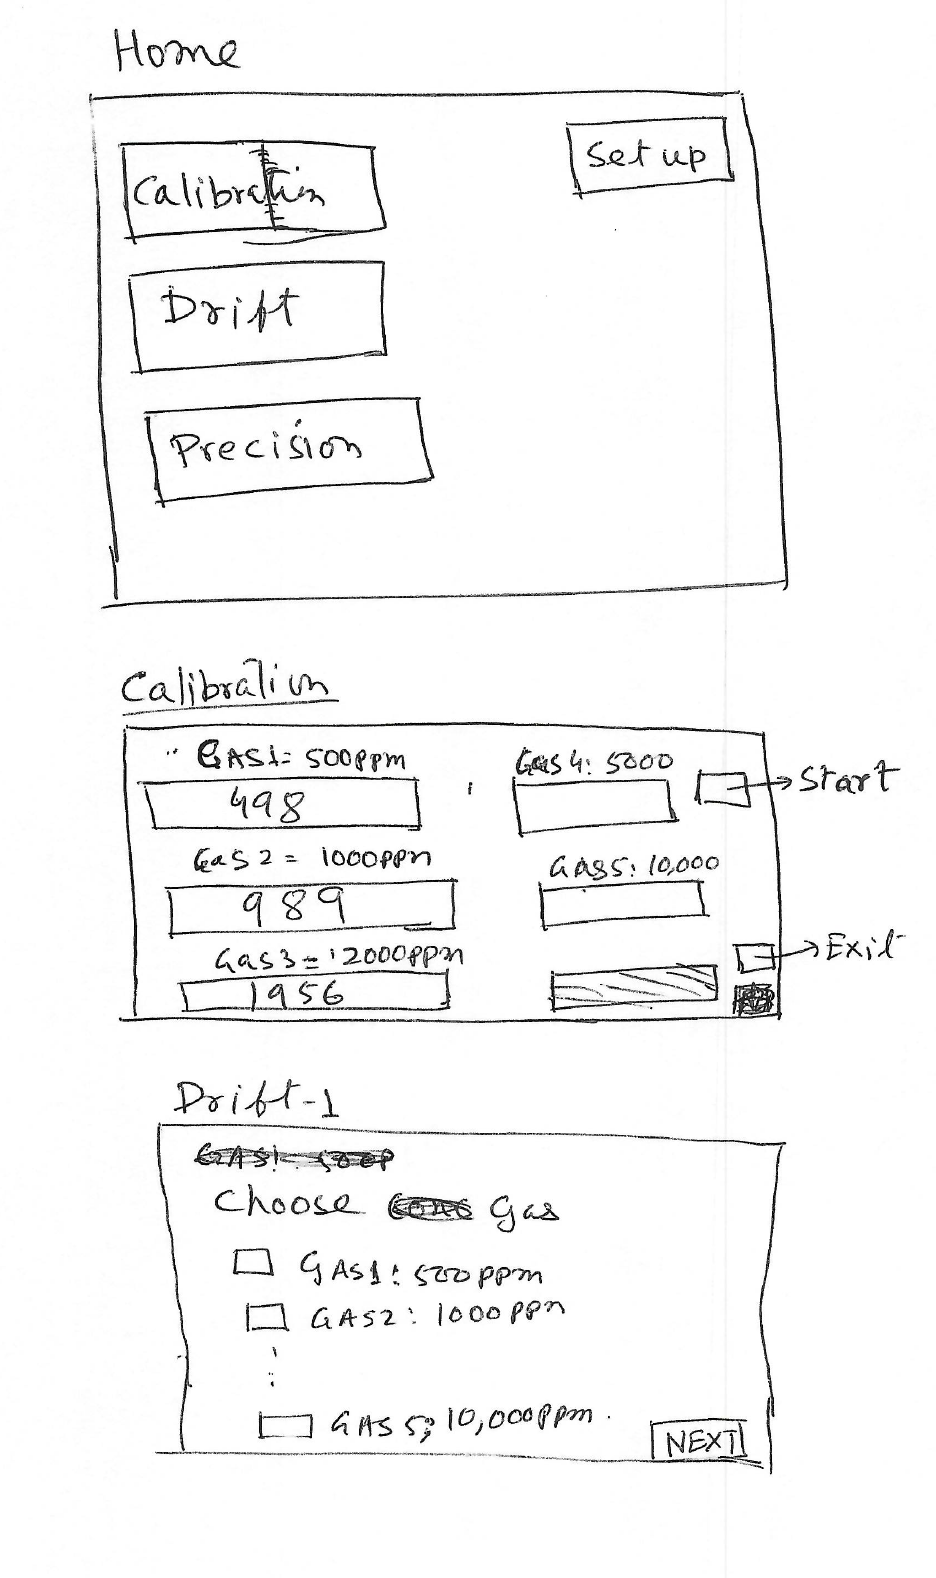 Home
Calibration
Set up
Drift
Precision
Calibration
GAS1= 500ppm
Gas 4: 5000
498
Start
Gas 2 = 1000ppm
GAS5: 10,000
989
Gas3=:2000ppm
Exit
1956
Drift-1
Choose Gas
GAS1: 500ppm
GAS2: 1000ppm
GAS 5; 10,000ppm.
NEXT